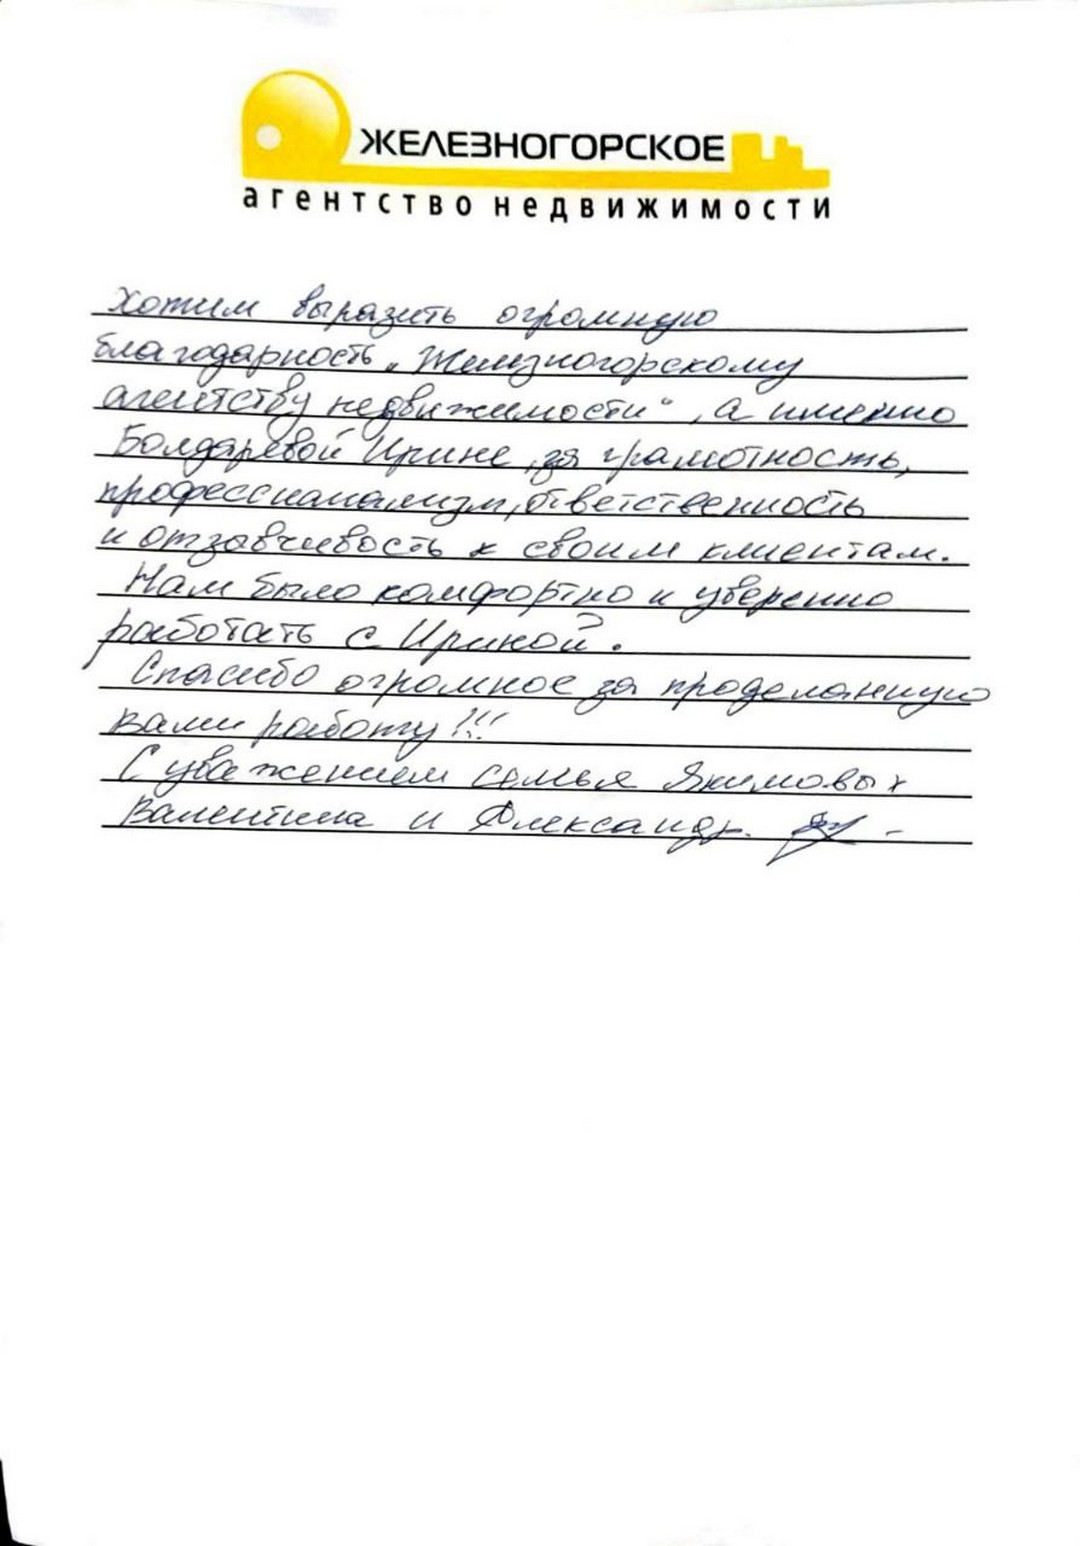 ЖЕЛЕЗНОГОРСКОЕ
агентство недвижимости
Хотим выразить огромную
благодарность „Железногорскому
агентству недвижимости“, а именно
Болдаревой Ирине, за грамотность,
профессионализм, ответственность
и отзывчивость к своим клиентам.
Нам было комфортно и уверенно
работать с Ириной.
Спасибо огромное за проделанную
вами работу!!!
С уважением семья Якимовых
Валентина и Александр.